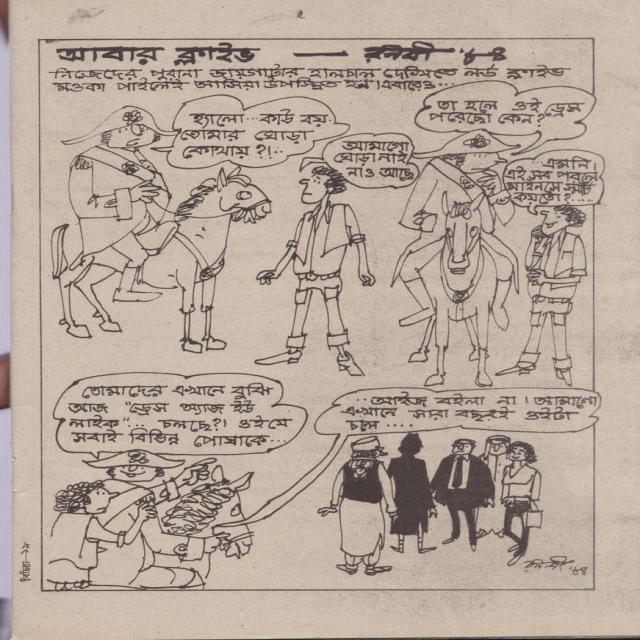 আবার ক্লাইভ — রনবী '৮৪
নিজেদের পুরানা জায়গাটার হালচাল দেখিতে লর্ড ক্লাইভ
মওকা পাইলেই আসিয়া উপস্থিত হন। এবারেও...
হ্যালো... কাউ বয়
তোমার ঘোড়া
কোথায়?!..
আমাগো
ঘোড়া নাই
নাও আছে
তা হলে ওই ড্রেস
পরেছো কেন?
...এমনি।
এই সব পরলে
স্মার্ট
তোমাদের এখানে বুঝি
আজ "ড্রেস অ্যাজ ইউ
লাইক".. চলছে?! ওই যে
সবাই বিভিন্ন পোষাকে...
..আইজ বইলা না। আমাগো
এখানে সারা বছরই ওইটা
চলে ....
রনবী '৮৪